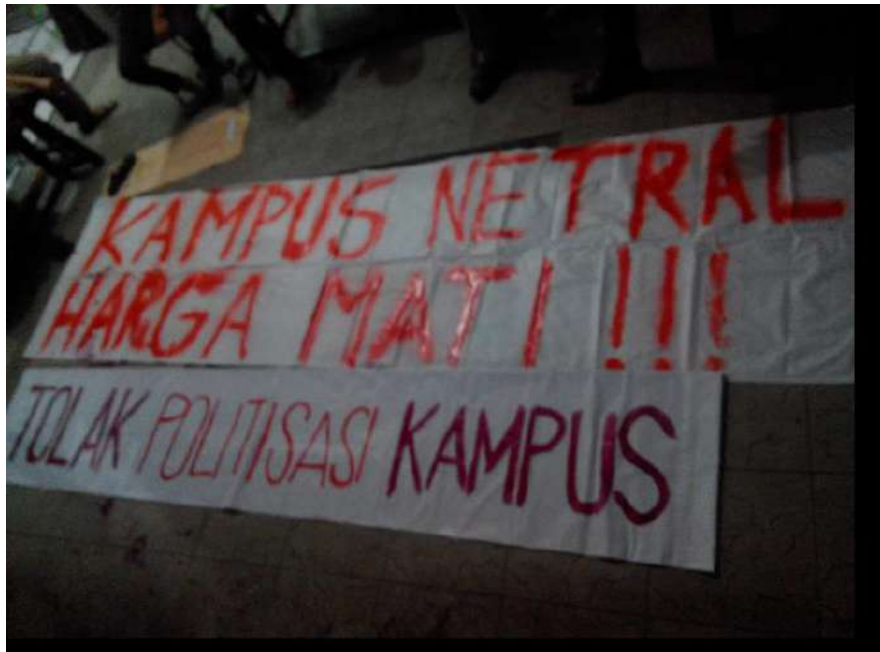 KAMPUS NETRAL
HARGA MATI!!!
TOLAK POLITISASI KAMPUS